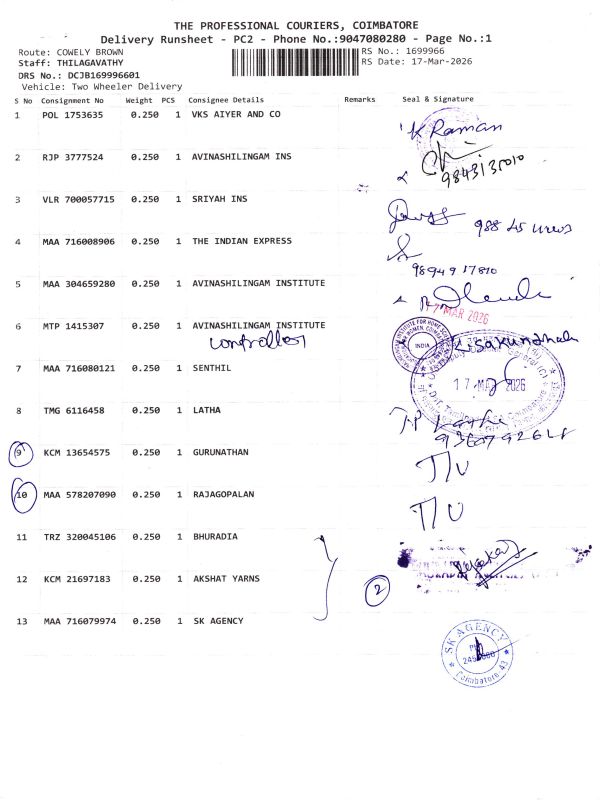 THE PROFESSIONAL COURIERS, COIMBATORE
Delivery Runsheet - PC2 - Phone No.:9047080280 - Page No.:1
Route: COWELY BROWN
RS No.: 1699966
Staff: THILAGAVATHY
RS Date: 17-Mar-2026
DRS No.: DCJB169996601
Vehicle: Two Wheeler Delivery
S No Consignment No Weight PCS Consignee Details Remarks Seal & Signature
1 POL 1753635 0.250 1 VKS AIYER AND CO
K Raman
2 RJP 3777524 0.250 1 AVINASHILINGAM INS
3 VLR 700057715 0.250 1 SRIYAH INS
4 MAA 716008906 0.250 1 THE INDIAN EXPRESS
5 MAA 304659280 0.250 1 AVINASHILINGAM INSTITUTE
17 MAR 2026
6 MTP 1415307 0.250 1 AVINASHILINGAM INSTITUTE
controller
INDIA
7 MAA 716080121 0.250 1 SENTHIL
17 MAR 2026
8 TMG 6116458 0.250 1 LATHA
9 KCM 13654575 0.250 1 GURUNATHAN
10 MAA 578207090 0.250 1 RAJAGOPALAN
11 TRZ 320045106 0.250 1 BHURADIA
12 KCM 21697183 0.250 1 AKSHAT YARNS
2
13 MAA 716079974 0.250 1 SK AGENCY
SK AGENCY
Coimbatore 43